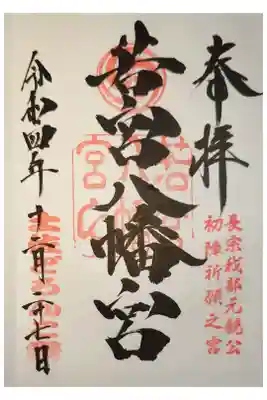 奉拝
長宗我部元親公
初陣祈願之宮
若宮八幡宮
若宮八幡宮
令和四年十二月二十七日